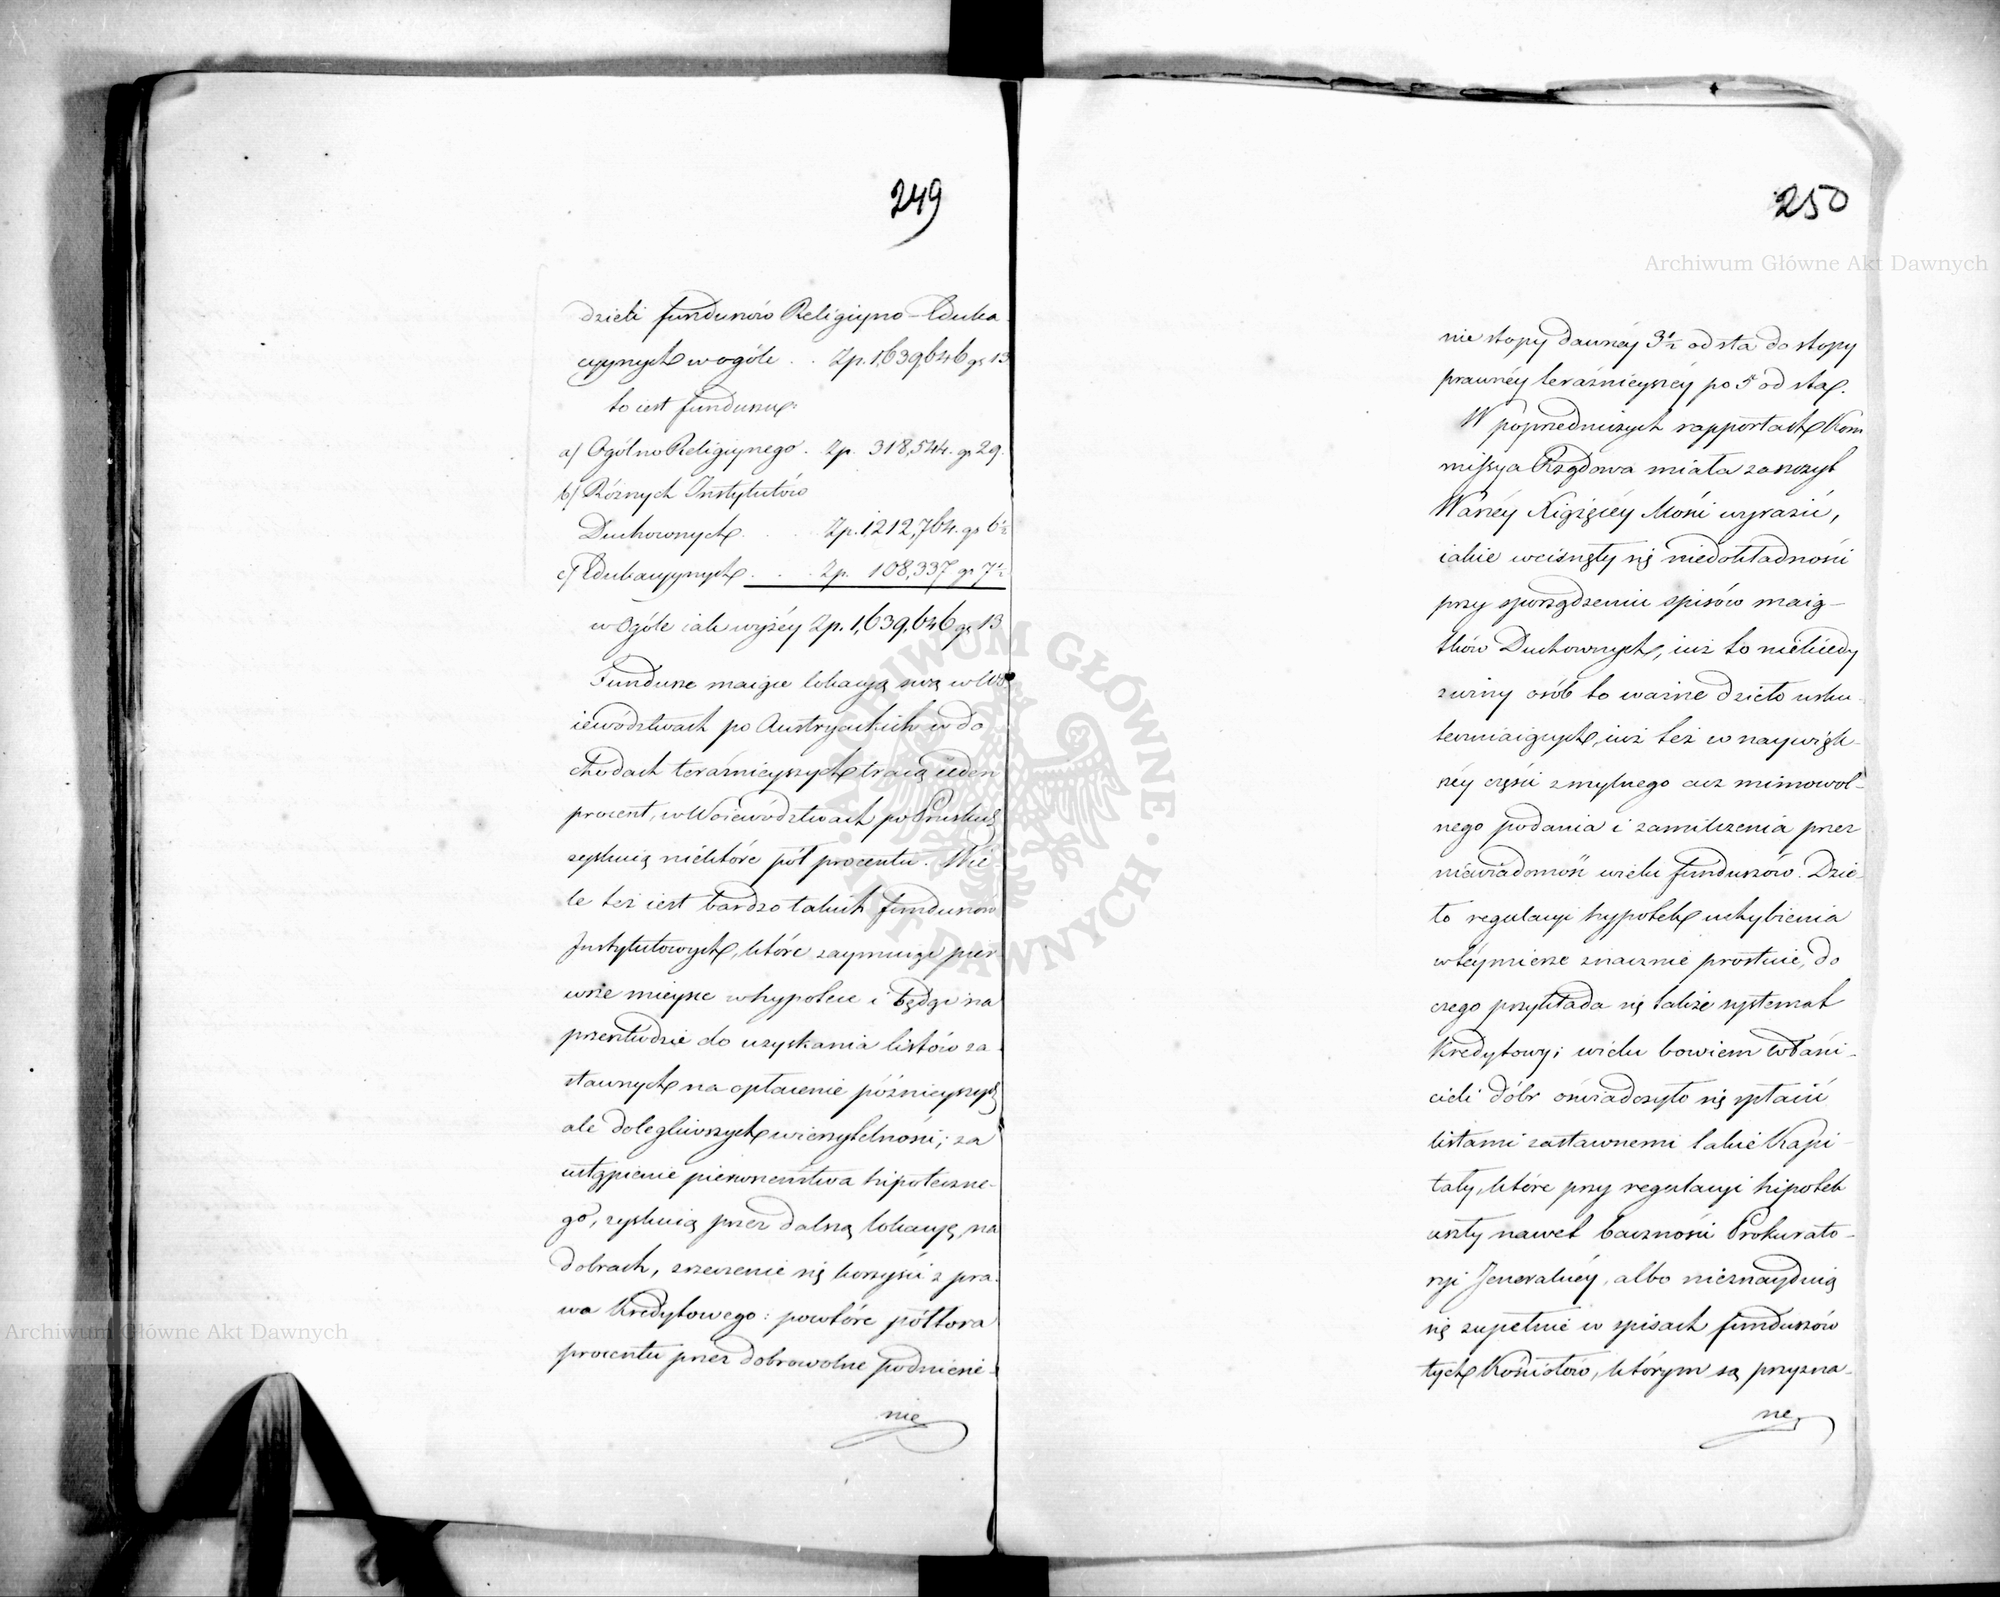 249
dzieli funduszów Religijno-Eduka-
cyynych w ogóle . . Zp. 1,639,646 gr 13
to iest funduszu:
a) Ogólno Religiynego . Zp. 318,544. gr 29.
b) Różnych Instytutów
Duchownych . . . Zp. 1212,764. gr 6½
c) Edukacyynych . . . Zp. 108,337 gr 7½
w Ogóle iak wyżéy Zp. 1,639,646 gr 13
Fundusze maiące lokacyą swą w Wo-
iewództwach po Austryackich w do
chodach teraźnieyszych tracą ieden
procent, w Woiewództwach po Pruskich
zyskuią niektóre pół procentu. Wie-
le też iest bardzo takich funduszów
Instytutowych, które zaymuiąc pier-
wsze mieysce w hypotece i będąc na
przeszkodzie do uzyskania listów za-
stawnych na opłacenie późnieyszych
ale dolegliwszych wierzytelności; za
ustąpienie pierwszeństwa hipoteczne-
go, zyskuią przez dalszą lokacyę na
dobrach, zrzeczenie się korzyści z pra-
wa Kredytowego: powtóre półtora
procentu przez dobrowolne podniesie-
nie
250
nie stopy dawnéy 3½ od sta do stopy
prawnéy teraźnieyszéy po 5 od sta.
W poprzedniczych rapportach Kom
missya Rządowa miała zaszczyt
Waszéy Xiążęcéy Mości wyrazić,
iakie wcisnęły się niedokładności
przy sporządzeniu spisów maią-
tków Duchownych, iuż to niekiedy
z winy osób to ważne dzieło usku-
teczniaiących, iuż też w naywięk-
széy części z mylnego acz mimowol-
nego podania i zamilczenia przez
niewiadomość wielu funduszów. Dzie-
ło regulacyi hypotek uchybienia
w téy mierze znacznie prostuie, do
czego przykłada się także systemat
Kredytowy; wielu bowiem właści-
cieli dóbr oświadczyło się spłacić
listami zastawnemi takie Kapi-
tały, które przy regulacyi hipotek
uszły nawet baczności Prokurato-
ryi Jeneralnéy, albo nieznayduią
się zupełnie w spisach funduszów
tych Kościołów, którym są przyzna-
ne
Archiwum Główne Akt Dawnych
Archiwum Główne Akt Dawnych
ARCHIWUM GŁÓWNE · AKT DAWNYCH ·